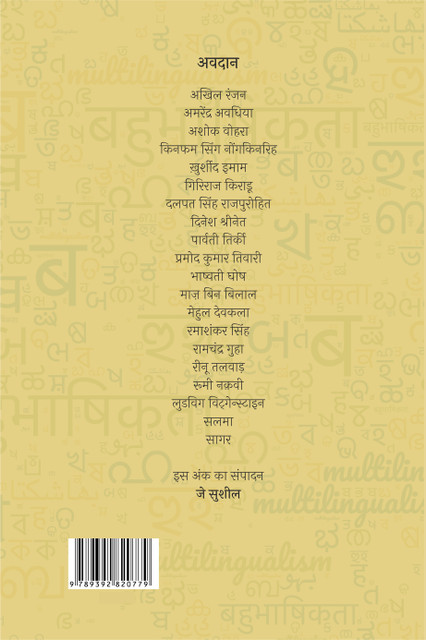 अवदान
अखिल रंजन
अमरेंद्र अवधिया
अशोक वोहरा
किनफम सिंग नोंगकिनरिह
ख़ुर्शीद इमाम
गिरिराज किराडू
दलपत सिंह राजपुरोहित
दिनेश श्रीनेत
पार्वती तिर्की
प्रमोद कुमार तिवारी
भाष्वती घोष
माज़ बिन बिलाल
मेहुल देवकला
रमाशंकर सिंह
रामचंद्र गुहा
रीनू तलवाड़
रूमी नक़वी
लुडविग विट्गेन्स्टाइन
सलमा
सागर
इस अंक का संपादन
जे सुशील
9 789392 820779
multilingualism
बहुभाषिकता
multilingualism
multilingualism
बहुभाषिकता